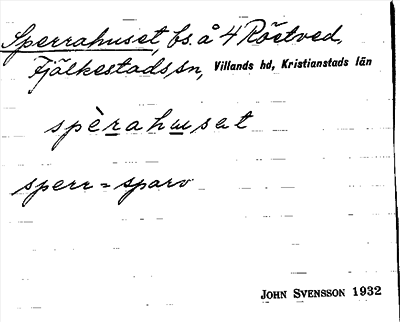 Sperrahuset, bs. å 4 Röetved,
Fjälkestads sn, Villands hd, Kristianstads län
spèrahuset
sperr = sparv
JOHN SVENSSON 1932